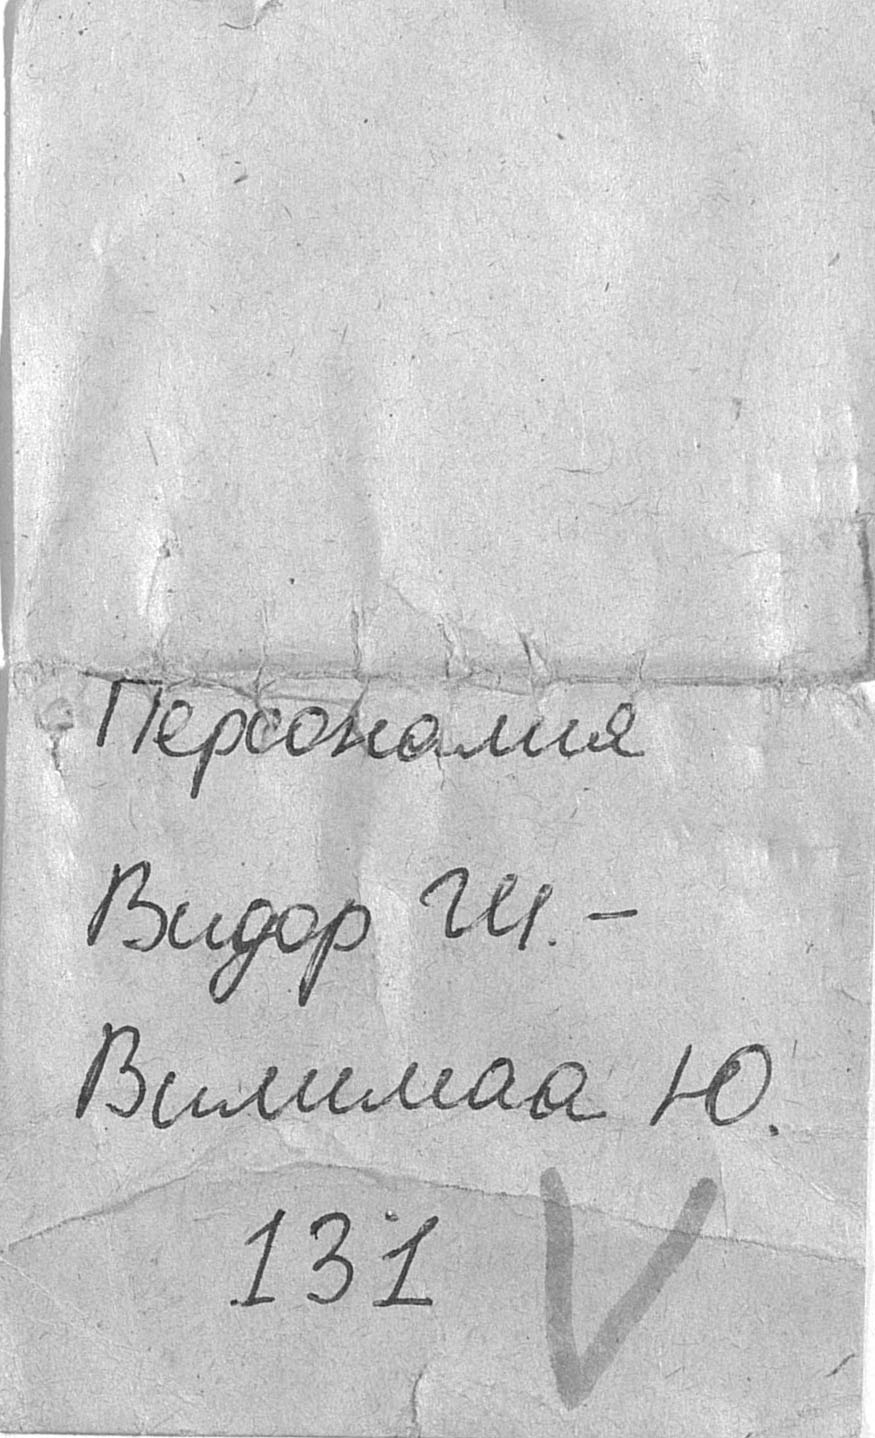 Персоналия
Видор Ш. -
Вилимаа Ю.
131